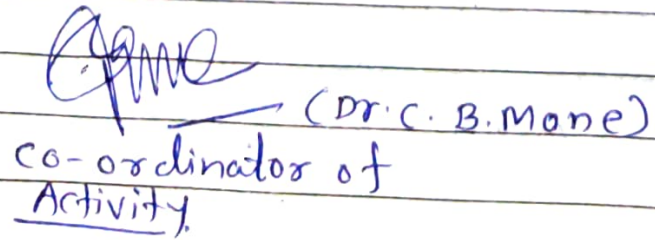 (Dr. C. B. Mane)
co-ordinator of
Activity.